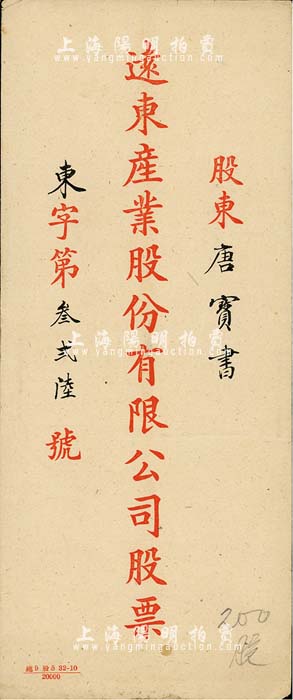 上海陽明拍賣
www.yangmingauction.com
股東 唐寶書
遠東産業股份有限公司股票
東字第叁弍陸號
上海陽明拍賣
www.yangmingauction.com
上海陽明拍賣
www.yangmingauction.com
200
股
20000